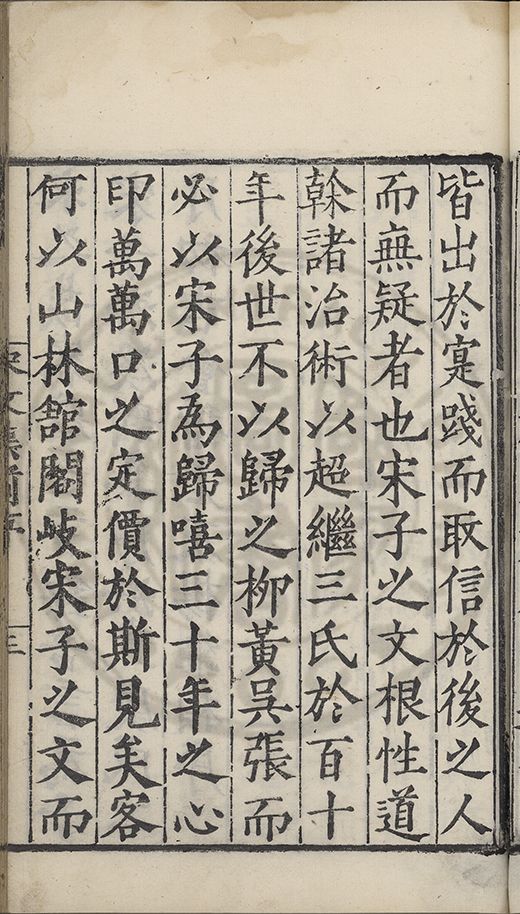 皆出於寔踐而取信於後之人
而無疑者也宋子之文根性道
榦諸治術以超繼三氏於百十
年後世不以歸之柳黃吳張而
必以宋子為歸嘻三十年之心
印萬萬口之定價於斯見矣客
何以山林舘閣歧宋子之文而
宋文集前序
三